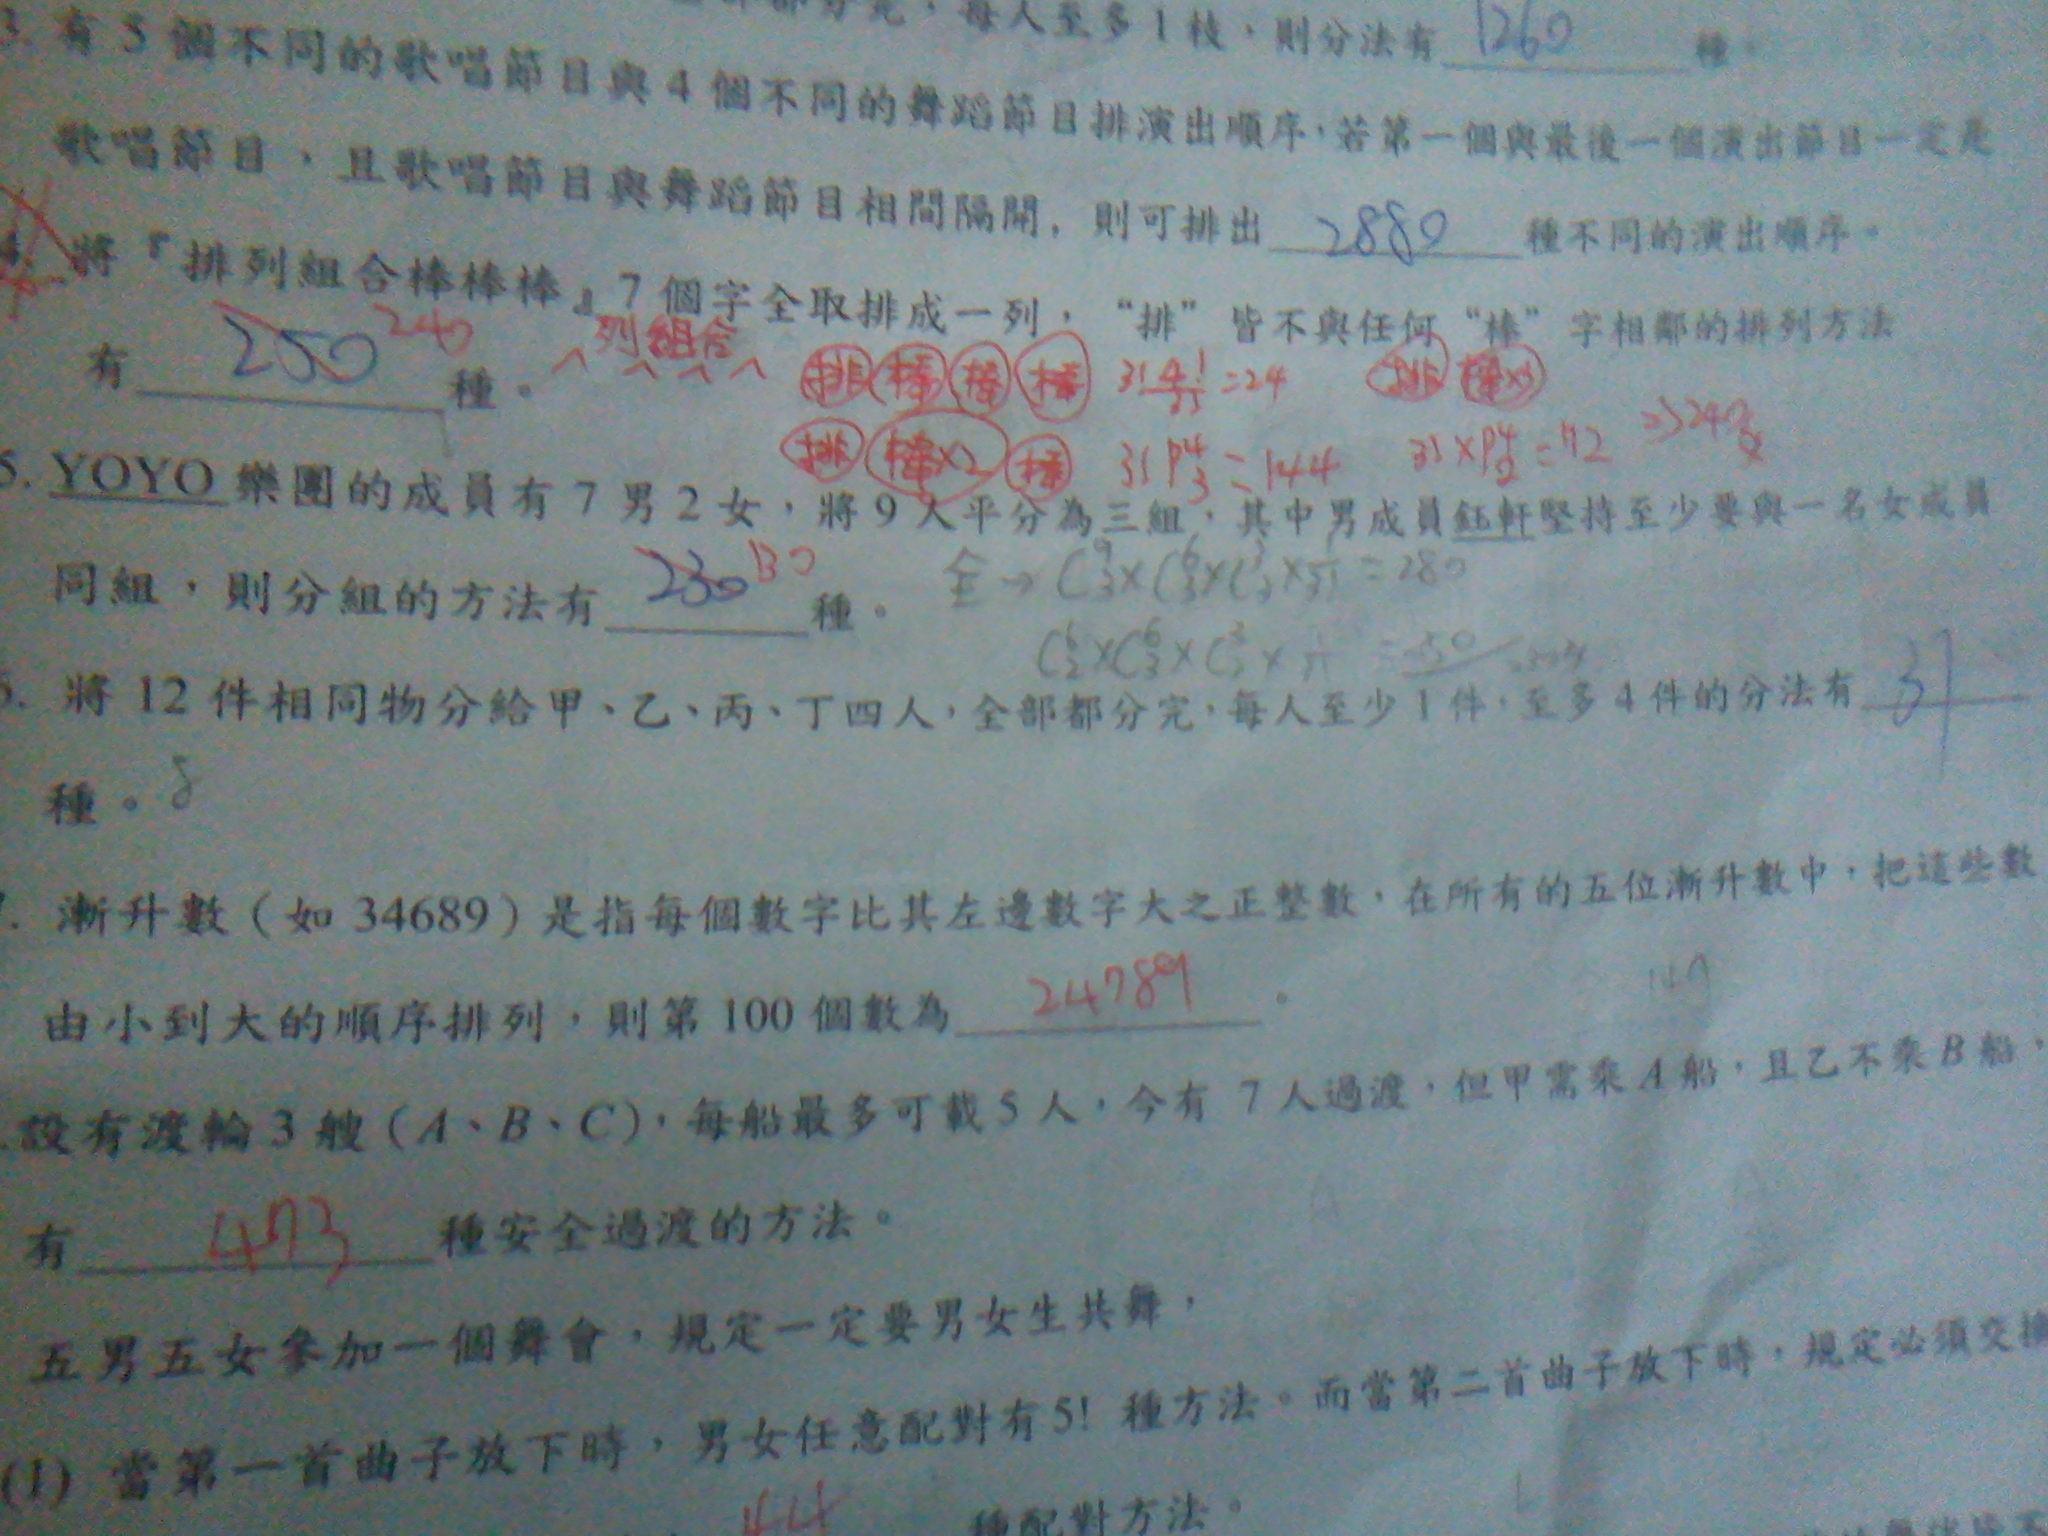 ，每人至多1枝，則分法有 1260 種。
3. 有5個不同的歌唱節目與4個不同的舞蹈節目排演出順序，若第一個與最後一個演出節目一定是
歌唱節目，且歌唱節目與舞蹈節目相間隔開，則可排出 2880 種不同的演出順序。
將『排列組合棒棒棒』7個字全取排成一列，“排”皆不與任何“棒”字相鄰的排列方法
有 250 240 種。
列組合
排 棒 棒 棒 3! 4!/3! =24 排 棒×3
排 棒×2 棒 3! P⁴₃ =144 3! × P⁴₂ =72 => 240
5. YOYO 樂團的成員有7男2女，將9人平分為三組，其中男成員鈺軒堅持至少要與一名女成員
同組，則分組的方法有 230 130 種。
全 → C⁹₃ × C⁶₃ × C³₃ × 1/3! = 280
將12件相同物分給甲、乙、丙、丁四人，全部都分完，每人至少1件，至多4件的分法有 31
種。
漸升數（如 34689）是指每個數字比其左邊數字大之正整數，在所有的五位漸升數中，把這些數
由小到大的順序排列，則第100個數為 24789 。
設有渡輪3艘（A、B、C），每船最多可載5人，今有 7人過渡，但甲需乘A船，且乙不乘B船，
有 473 種安全過渡的方法。
五男五女參加一個舞會，規定一定要男女生共舞，
(1) 當第一首曲子放下時，男女任意配對有5! 種方法。而當第二首曲子放下時，規定必須交換
44 種配對方法。